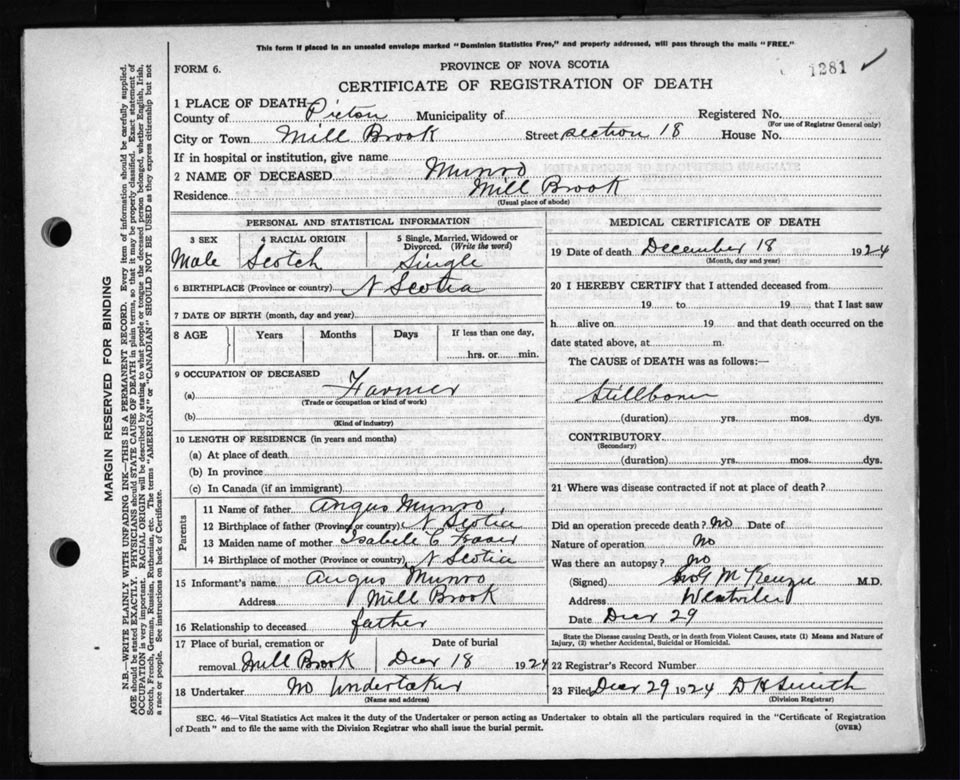 This form if placed in an unsealed envelope marked "Dominion Statistics Free," and properly addressed, will pass through the mails "FREE."
FORM 6.
PROVINCE OF NOVA SCOTIA
1281 ✓
CERTIFICATE OF REGISTRATION OF DEATH
1 PLACE OF DEATH—
County of Pictou Municipality of Registered No.
(For use of Registrar General only)
City or Town Mill Brook Street section 18 House No.
If in hospital or institution, give name
2 NAME OF DECEASED Munro
Residence Mill Brook
(Usual place of abode)
PERSONAL AND STATISTICAL INFORMATION
3 SEX
Male
4 RACIAL ORIGIN
Scotch
5 Single, Married, Widowed or Divorced. (Write the word)
Single
6 BIRTHPLACE (Province or country) N Scotia
7 DATE OF BIRTH (month, day and year)
8 AGE Years Months Days If less than one day,
hrs. or min.
9 OCCUPATION OF DECEASED
(a) Farmer
(Trade or occupation or kind of work)
(b)
(Kind of industry)
10 LENGTH OF RESIDENCE (in years and months)
(a) At place of death
(b) In province
(c) In Canada (if an immigrant)
Parents
11 Name of father Angus Munro
12 Birthplace of father (Province or country) N Scotia
13 Maiden name of mother Isabele C Fraser
14 Birthplace of mother (Province or country) N Scotia
15 Informant's name Angus Munro
Address Mill Brook
16 Relationship to deceased father
17 Place of burial, cremation or Date of burial
removal Mill Brook Decr 18 1924
18 Undertaker No Undertaker
(Name and address)
MEDICAL CERTIFICATE OF DEATH
19 Date of death December 18 1924
(Month, day and year)
20 I HEREBY CERTIFY that I attended deceased from
19 to 19 that I last saw
h alive on 19 and that death occurred on the
date stated above, at m.
The CAUSE of DEATH was as follows:—
Stillborn
(duration) yrs. mos. dys.
CONTRIBUTORY
(Secondary)
(duration) yrs. mos. dys.
21 Where was disease contracted if not at place of death?
Did an operation precede death? No Date of
Nature of operation No
Was there an autopsy? No
(Signed) McKenzie M.D.
Address Westville
Date Decr 29
State the Disease causing Death, or in death from Violent Causes, state (1) Means and Nature of
Injury, (2) whether Accidental, Suicidal or Homicidal.
22 Registrar's Record Number
23 Filed Decr 29 1924 D H Smith
(Division Registrar)
SEC. 46—Vital Statistics Act makes it the duty of the Undertaker or person acting as Undertaker to obtain all the particulars required in the "Certificate of Registration
of Death" and to file the same with the Division Registrar who shall issue the burial permit.
(OVER)
MARGIN RESERVED FOR BINDING
N.B.—WRITE PLAINLY WITH UNFADING INK—THIS IS A PERMANENT RECORD. Every item of information should be carefully supplied.
AGE should be stated EXACTLY. PHYSICIANS should STATE CAUSE OF DEATH in plain terms, so that it may be properly classified. Exact statement of
OCCUPATION is very important. RACIAL ORIGIN will be described by stating to what people or tongue the deceased person belonged, whether English, Irish,
Scotch, French, German, Russian, Ruthenian, etc. The terms "AMERICAN" or "CANADIAN" SHOULD NOT BE USED as they express citizenship but not
a race or people. See instructions on back of Certificate.